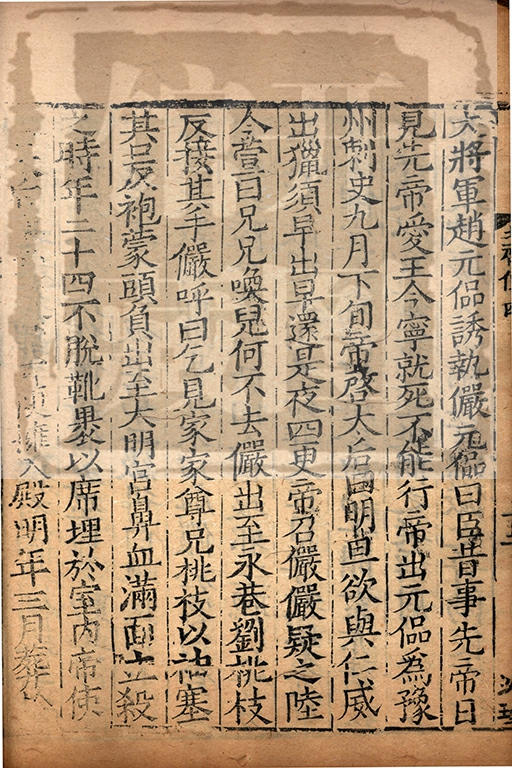 大將軍趙元偘誘執儼元偘曰臣昔事先帝日
見先帝愛王今寧就死不能行帝出元偘爲豫
州刺史九月下旬帝啓太后曰明旦欲與仁威
出獵須早出早還是夜四更帝召儼儼疑之陸
令萱曰兄兄喚兒何不去儼出至永巷劉桃枝
反接其手儼呼曰乞見家家尊兄桃枝以袖塞
其口反袍蒙頭負出至大明宮鼻血滿面立殺
之時年二十四不脫靴裹以席埋於室内帝使
雍入殿明年三月葬